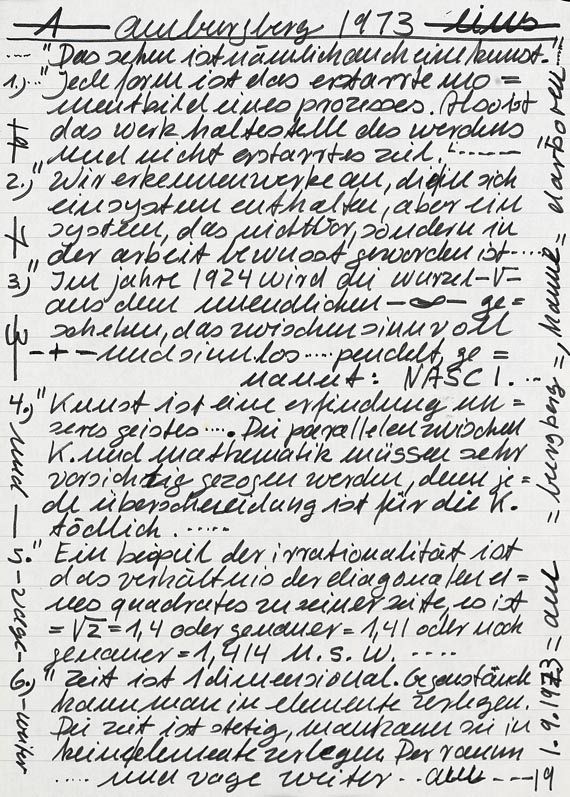 A — amburgsberg 1973
.... "Das sehen ist nämlich auch eine kunst."....
1.) .. "Jede form ist das erstarrte mo =
mentbild eines prozesses. Also ist
das werk haltestelle des werdens
und nicht erstarrtes ziel. "......
2.) "Wir erkennen werke an, die in sich
ein system enthalten, aber ein
system, das nicht vor, sondern in
der arbeit bewusst geworden ist....
3.) "Im jahre 1924 wird die wurzel -√-
aus dem unendlichen -∞- ge =
schehen, das zwischen sinnvoll
- + - und sinnlos .... pendelt, ge =
nannt: NASCI. ...
4.) "Kunst ist eine erfindung un =
seres geistes .... Die parallelen zwischen
K. und mathematik müssen sehr
vorsichtig gezogen werden, denn je =
de überschneidung ist für die K.
tödlich. .....
5. "Ein beispiel der irrationalität ist
das verhältnis der diagonalen ei =
nes quadrates zu seiner seite, es ist
= √2 = 1,4 oder genauer = 1,41 oder noch
genauer = 1,414 u. s. w. ....
6.) "Zeit ist 1 dimensional. Gegenstände
kann man in elemente zerlegen.
Die zeit ist stetig, man kann sie in
keine elemente zerlegen. Der raum
..... und vage weiter .. am - - - 19
und — 5 - vage - 6.) - weiter
1.9.1973 = am = burgsberg =, hanne = darboven ....